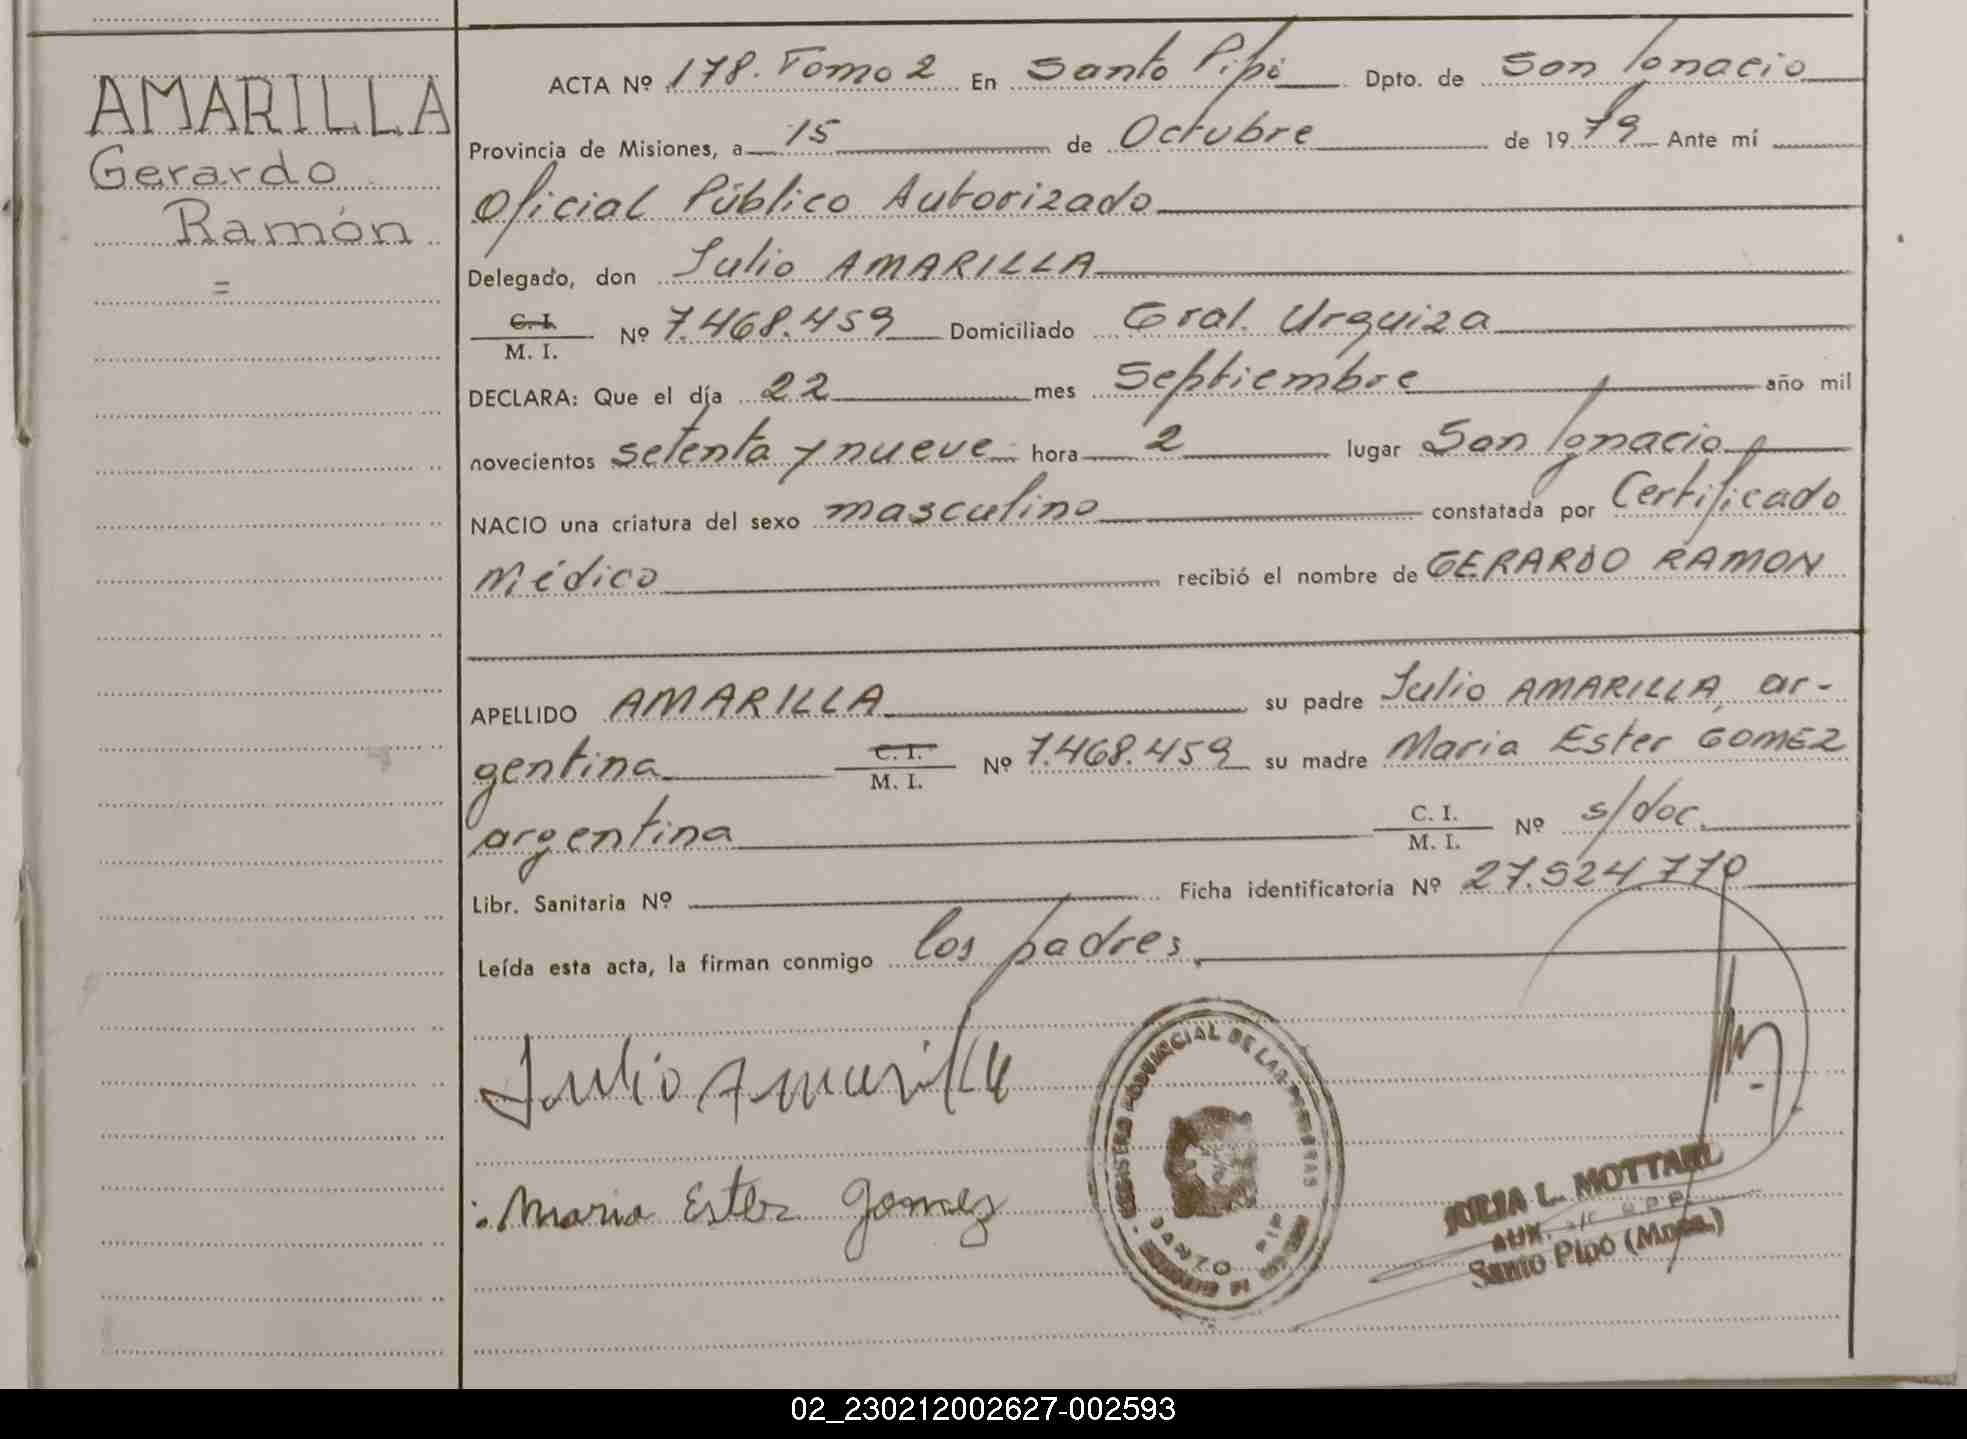 AMARILLA
Gerardo
Ramón
=
ACTA Nº 178. Tomo 2 En Santo Pipó Dpto. de San Ignacio
Provincia de Misiones, a 15 de Octubre de 1979 Ante mí
Oficial Público Autorizado
Delegado, don Julio AMARILLA
C. I. / M. I. Nº 7.468.459 Domiciliado Gral. Urquiza
DECLARA: Que el día 22 mes Septiembre año mil
novecientos setenta y nueve hora 2 lugar San Ignacio
NACIO una criatura del sexo masculino constatada por Certificado
Médico recibió el nombre de GERARDO RAMON
APELLIDO AMARILLA su padre Julio AMARILLA, ar-
gentina C. I. / M. I. Nº 7.468.459 su madre Maria Ester GÓMEZ
argentina C. I. / M. I. Nº s/doc.
Libr. Sanitaria Nº Ficha identificatoria Nº 27.524.770
Leída esta acta, la firman conmigo los padres.
Julio Amarilla
Maria Ester Gomez
REGISTRO PROVINCIAL DE LAS PERSONAS
SANTO PIPO
JULIA L. MOTTA
AUX.
Santo Pipó (Mnes.)
02_230212002627-002593